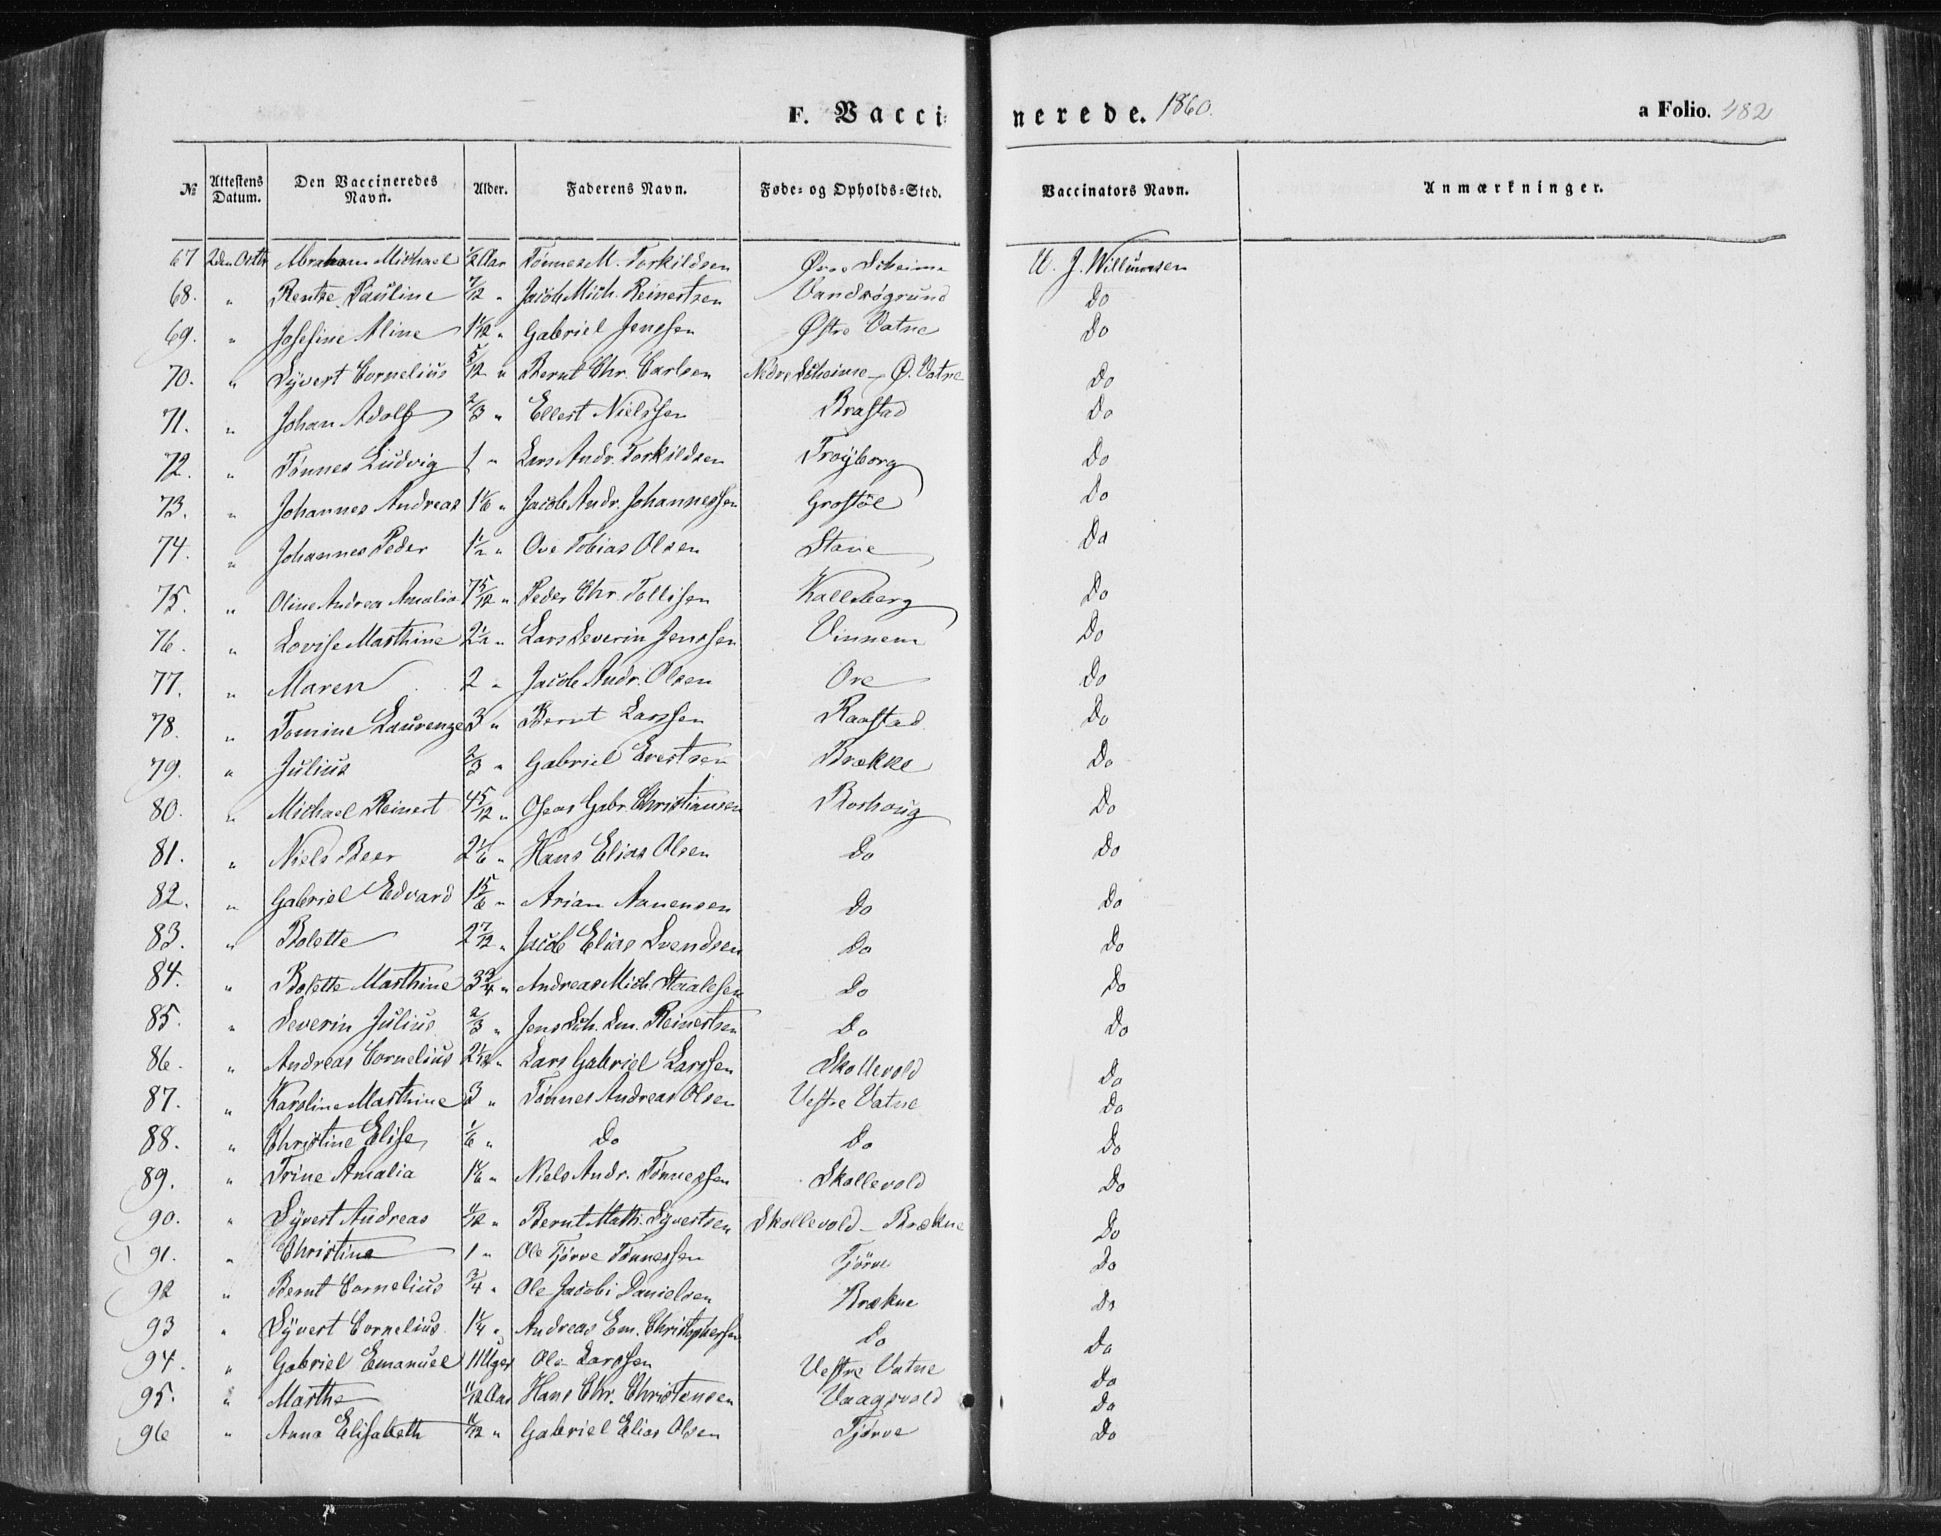 F. Vaccinerede. 1860. a Folio. 482
№ Attestens Datum. Den Vaccineredes Navn. Alder. Faderens Navn. Føde- og Opholds-Sted. Vaccinators Navn. Anmærkninger.
67 2den Octbr Abraham Michael 1/2 Aar Tønnes M. Torkildsen Øvre Scheime U. J. Willumsen
68. " Rentze Pauline 7/12 " Jacob Mich. Reinertsen Vandsøgrund Do
69. " Josefine Aline " Gabriel Jenssen Østre Vatne Do
70. " Syvert Cornelius 5/12 " Bernt Chr. Carlsen Nedre Scheime - Ø. Vatne Do
71. " Johan Adolf 2/3 " Ellert Nielssen Brastad Do
72. " Tønnes Ludvig 1 " Lars Andr. Torkildsen Trøyborg Do
73. " Johannes Andreas 1 1/6 " Jacob Andr. Johannessen Grostøl Do
74. " Johannes Peder 1 1/2 " Ove Tobias Olsen Stave Do
75. " Oline Andrea Amalia 7 5/12 " Peder Chr. Tollisen Kallsberg Do
76. " Lovise Marthine 2 1/2 " Lars Severin Jenssen Vinnem Do
77. " Maren 2 " Jacob Andr. Olsen Ore Do
78. " Tomine Laurenze 3 " Bernt Larssen Raastad Do
79. " Julius 2/3 " Gabriel Evertsen Brække Do
80. " Michael Reinert 4 5/12 " Oseas Gabr. Christiansen Rorhoug Do
81. " Niels Beer 2 1/6 " Hans Elias Olsen Do Do
82. " Gabriel Edvard 1 5/6 " Arian Aanensen Do Do
83. " Bolette 2 7/12 " Jacob Elias Svendsen Do Do
84. " Bolette Marthine 3 3/4 " Andreas Mich. Staalesen Do Do
85. " Severin Julius 2/3 " Jens Sch. Sm. Reinertsen Do Do
86. " Andreas Cornelius 2 1/12 " Lars Gabriel Larssen Skollevold Do
87. " Karoline Marthine 3 " Tønnes Andreas Olsen Vestre Vatne Do
88. " Christine Elise 1/6 " Do Do Do
89. " Trine Amalia 1 1/6 " Niels Andr. Tønnessen Skollevold Do
90. " Syvert Andreas " Bernt Math. Syvertsen Skollevold - Brækne Do
91. " Christine 1 " Ole Tjörve Tønnessen Tjörve Do
92 " Bernt Cornelius 3/4 " Ole Jacobi Danielsen Brækne Do
93 " Syvert Cornelius 1 1/4 " Andreas Em. Christophersen Do Do
94. " Gabriel Emanuel 11 Uger Ole Larssen Vestre Vatne Do
95. " Marthe 11/12 Aar Hans Chr. Christensen Vaagsvold Do
96 " Anna Elisabeth 11/12 " Gabriel Elias Olsen Tjörve Do